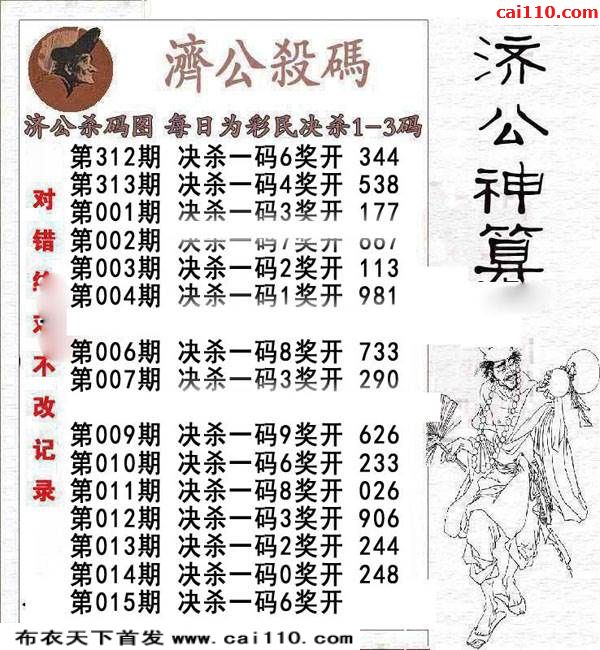 cai110.com
濟公殺碼
济公神算
济公杀码图 每日为彩民决杀1-3码
第312期 决杀一码6奖开 344
第313期 决杀一码4奖开 538
第001期 决杀一码3奖开 177
第002期 决杀一码7奖开
第003期 决杀一码2奖开 113
第004期 决杀一码1奖开 981
第006期 决杀一码8奖开 733
第007期 决杀一码3奖开 290
第009期 决杀一码9奖开 626
第010期 决杀一码6奖开 233
第011期 决杀一码8奖开 026
第012期 决杀一码3奖开 906
第013期 决杀一码2奖开 244
第014期 决杀一码0奖开 248
第015期 决杀一码6奖开
对错 不改记录
布衣天下首发 www.cai110.com